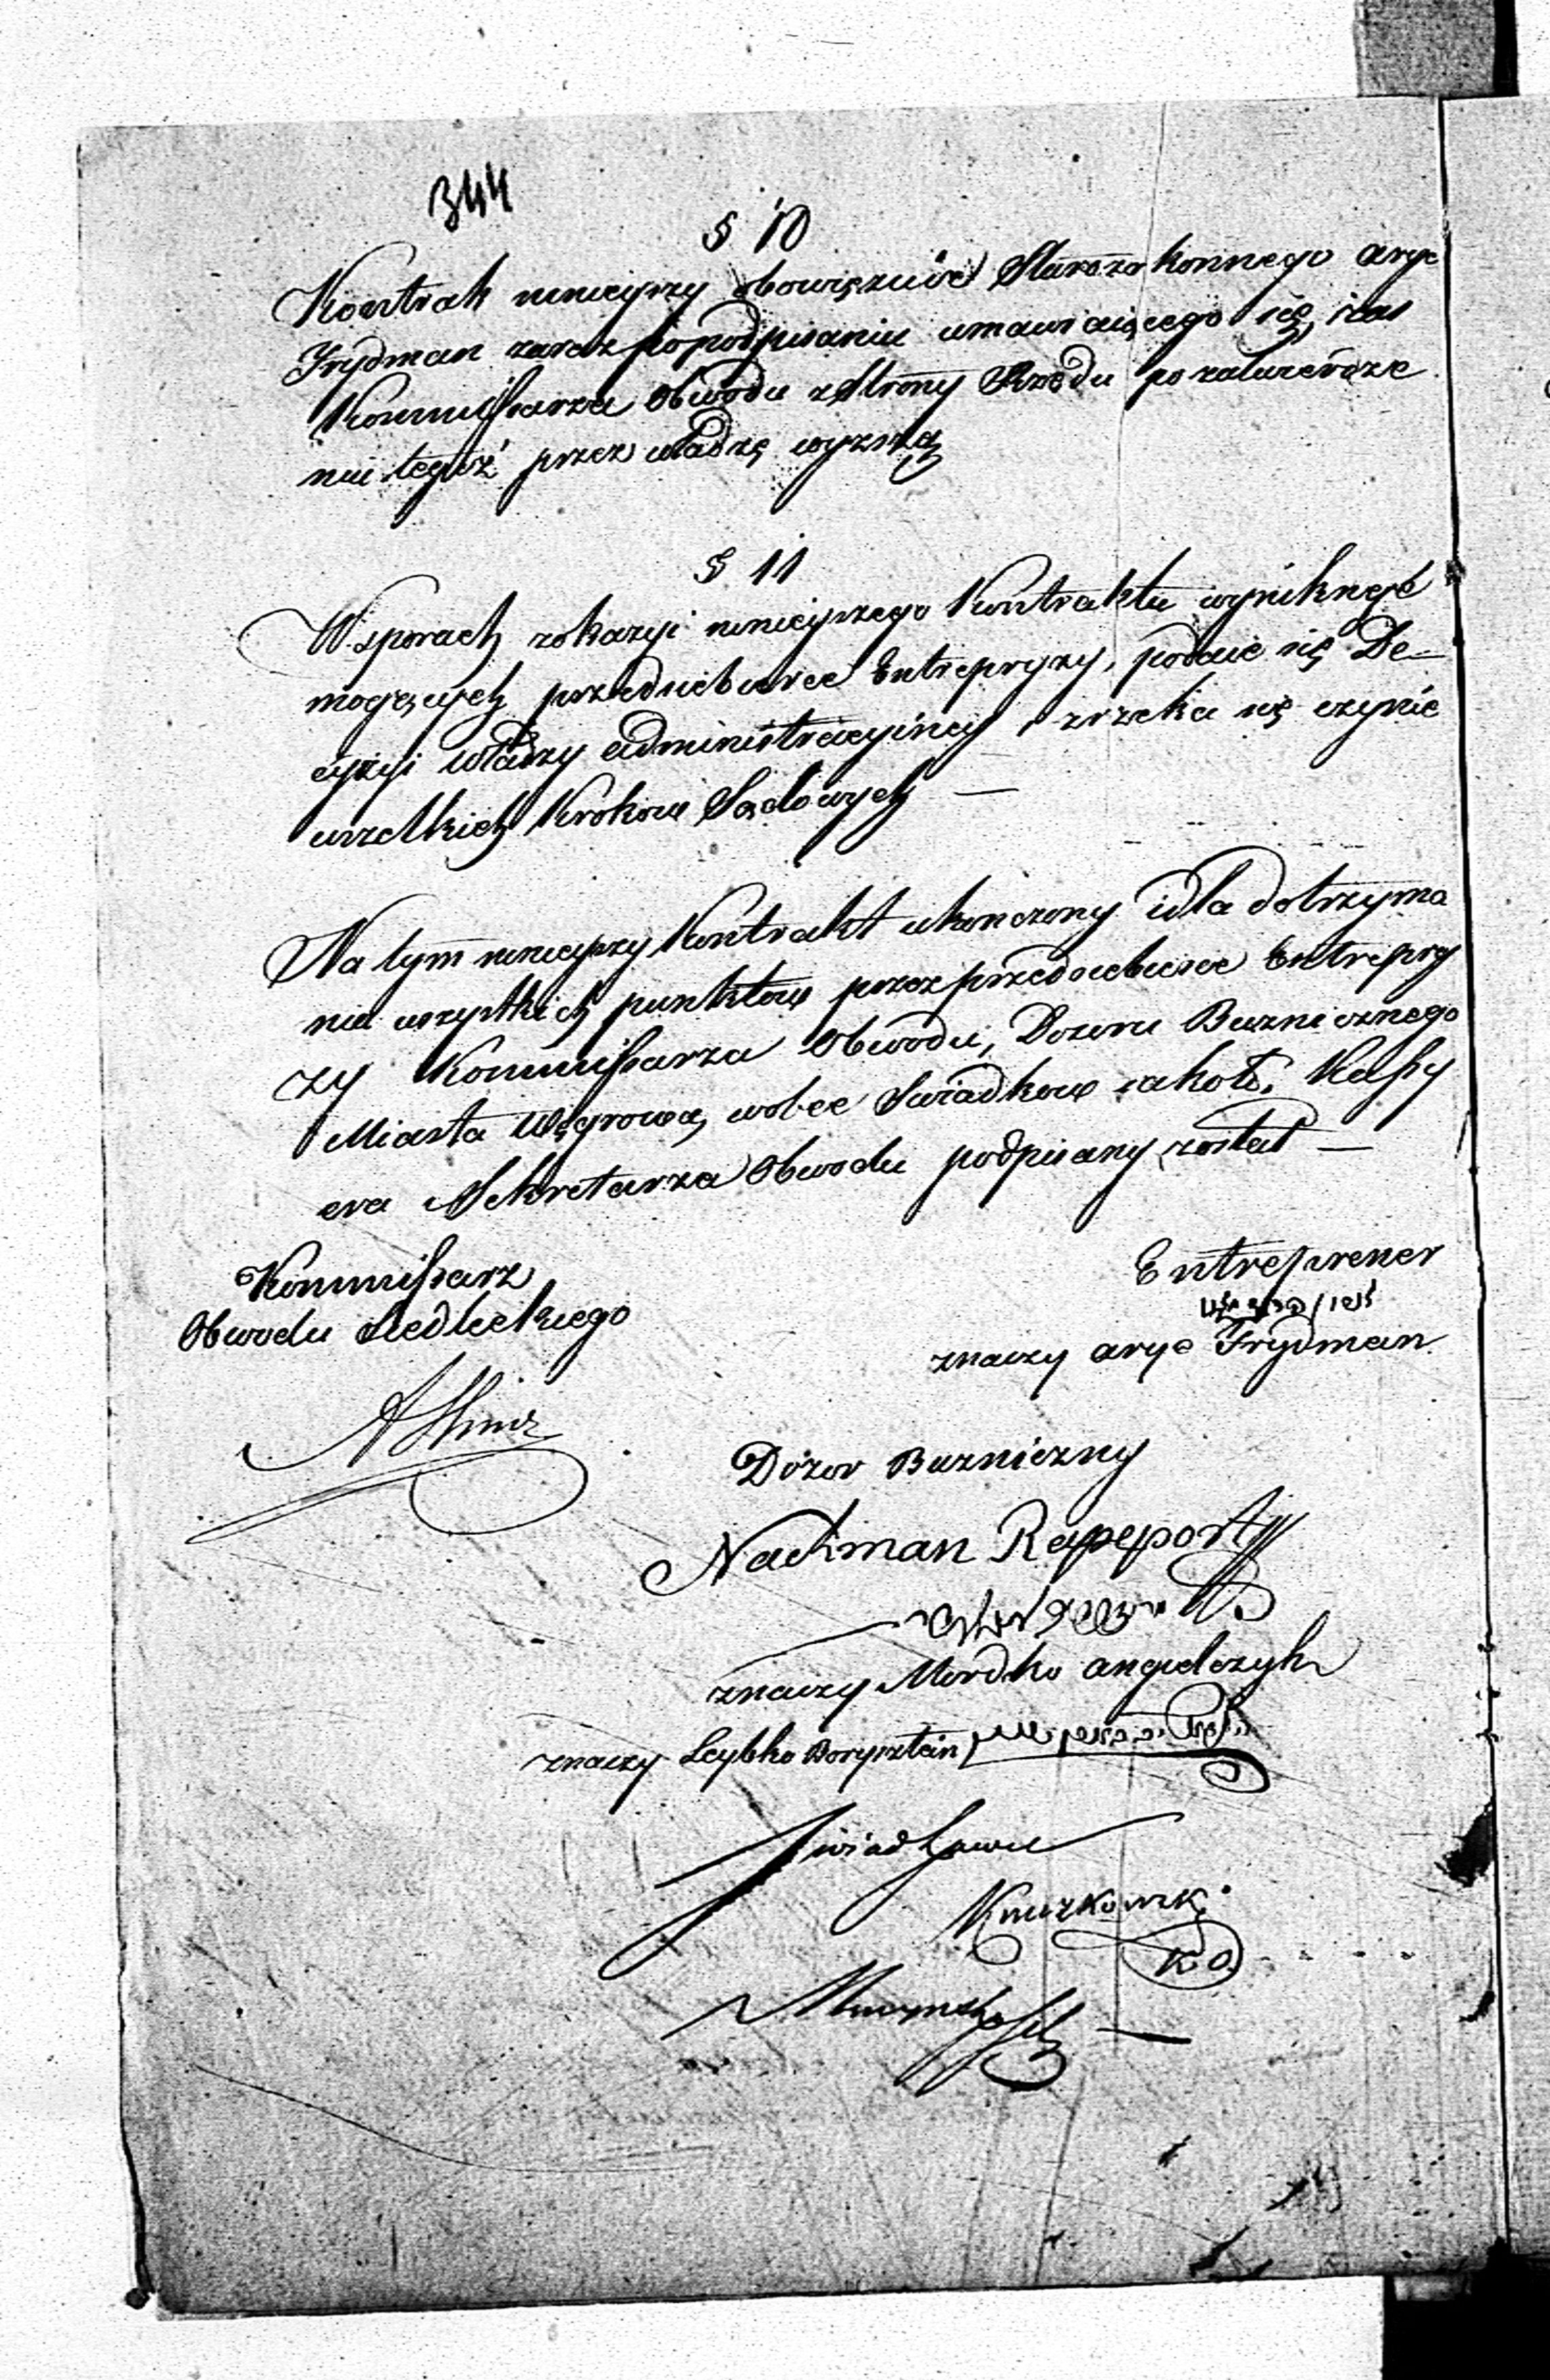 344
§ 10
Kontrakt ninieyszy obowięzuie Starozakonnego Arye
Frydman zaraz po podpisaniu umawiaiącego się, zas
Kommissarza Obwodu z Strony Rządu po zatwierdze
niu tegoż przez władzę wyzszą
§ 11
W sporach z okazyi ninieyszego Kontraktu wyniknąć
mogących przedsiebierce Entrepryzy, poddaie się De-
cyzyi władzy administracyiney i zrzeka się czynić
wszelkich Krokow Sądowych —
Na tym ninieyszy Kontrakt ukonczony i dla dotrzyma
nia wszystkich punktow przez przedsiebierce Entrepry
zy Kommissarza Obwodu, Dozoru Buznicznego
Miasta Węgrowa, wobec Swiadkow iakoto: Kassy
era i Sekretarza Obwodu podpisany został —
Kommissarz
Obwodu Siedleckiego
Entreprener
znaczy Arye Frydman
Dozor Buzniczny
Nachman Rapeport
znaczy Mordko Angielczyk
znaczy Leybko Borysztein
Swiadkowie
KO